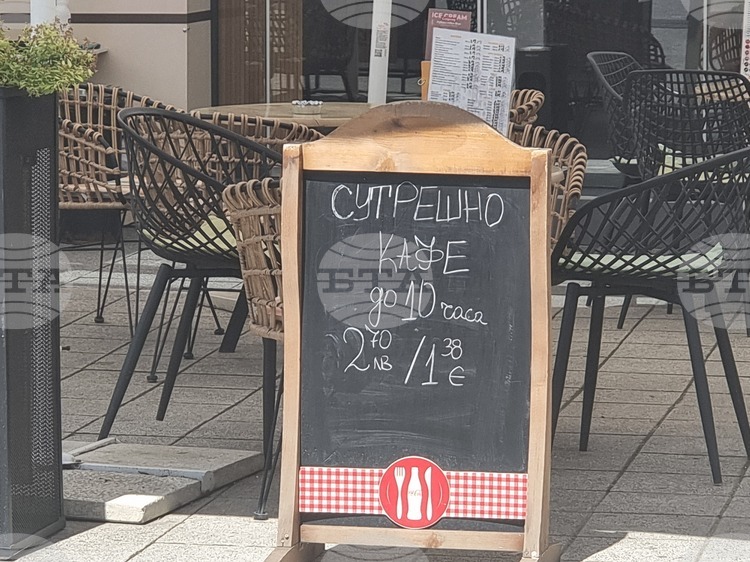 ICE CREAM
СУТРЕШНО
КАФЕ
до 10 часа
2 70 лв / 1 38 €
БТА